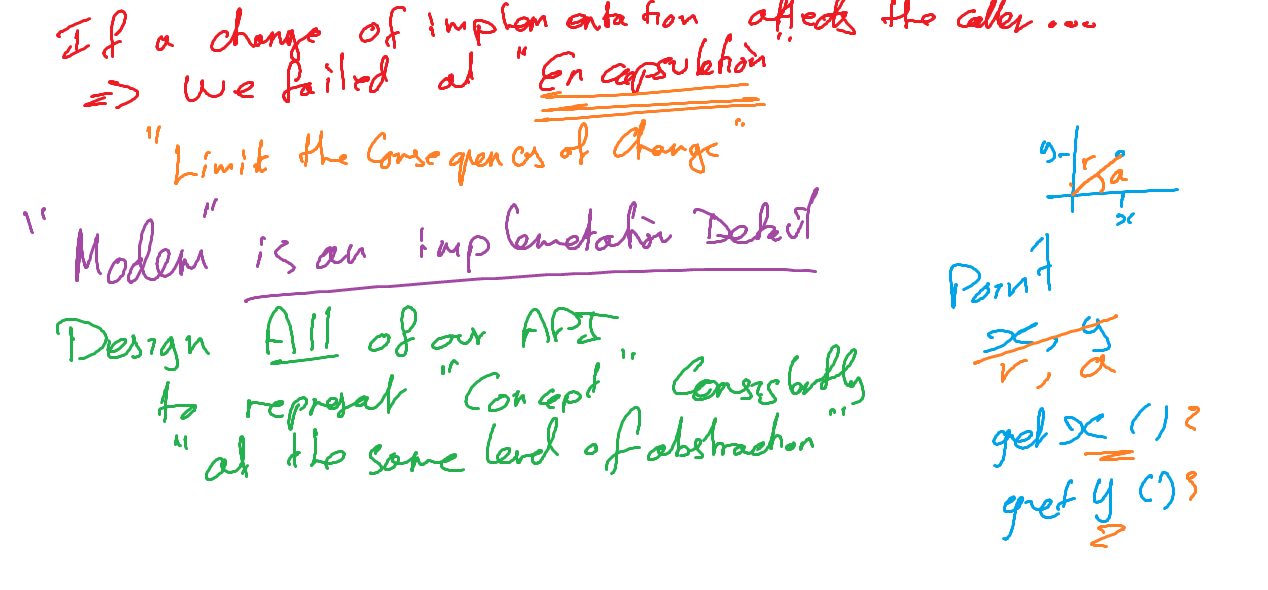 If a change of implementation affects the caller...
=> we failed at "Encapsulation"
"Limit the Consequences of Change"
"Modem" is an implemetation Detail
Design All of our API
to represent "Concept" Consistently
"at the same level of abstraction"
y
r
a
x
Point
x, y
r, a
get x ()
get y ()